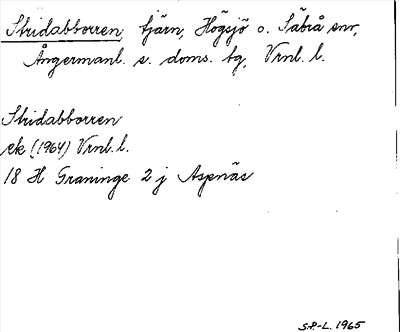 Stridabborren, tjärn, Högsjö o. Säbrå snr,
Ångermanl. s. doms. tg, Vrnl. l.
Stridabborren
ek (1964) Vrnl. l.
18 H Graninge 2 j Aspnäs
S.P-L. 1965